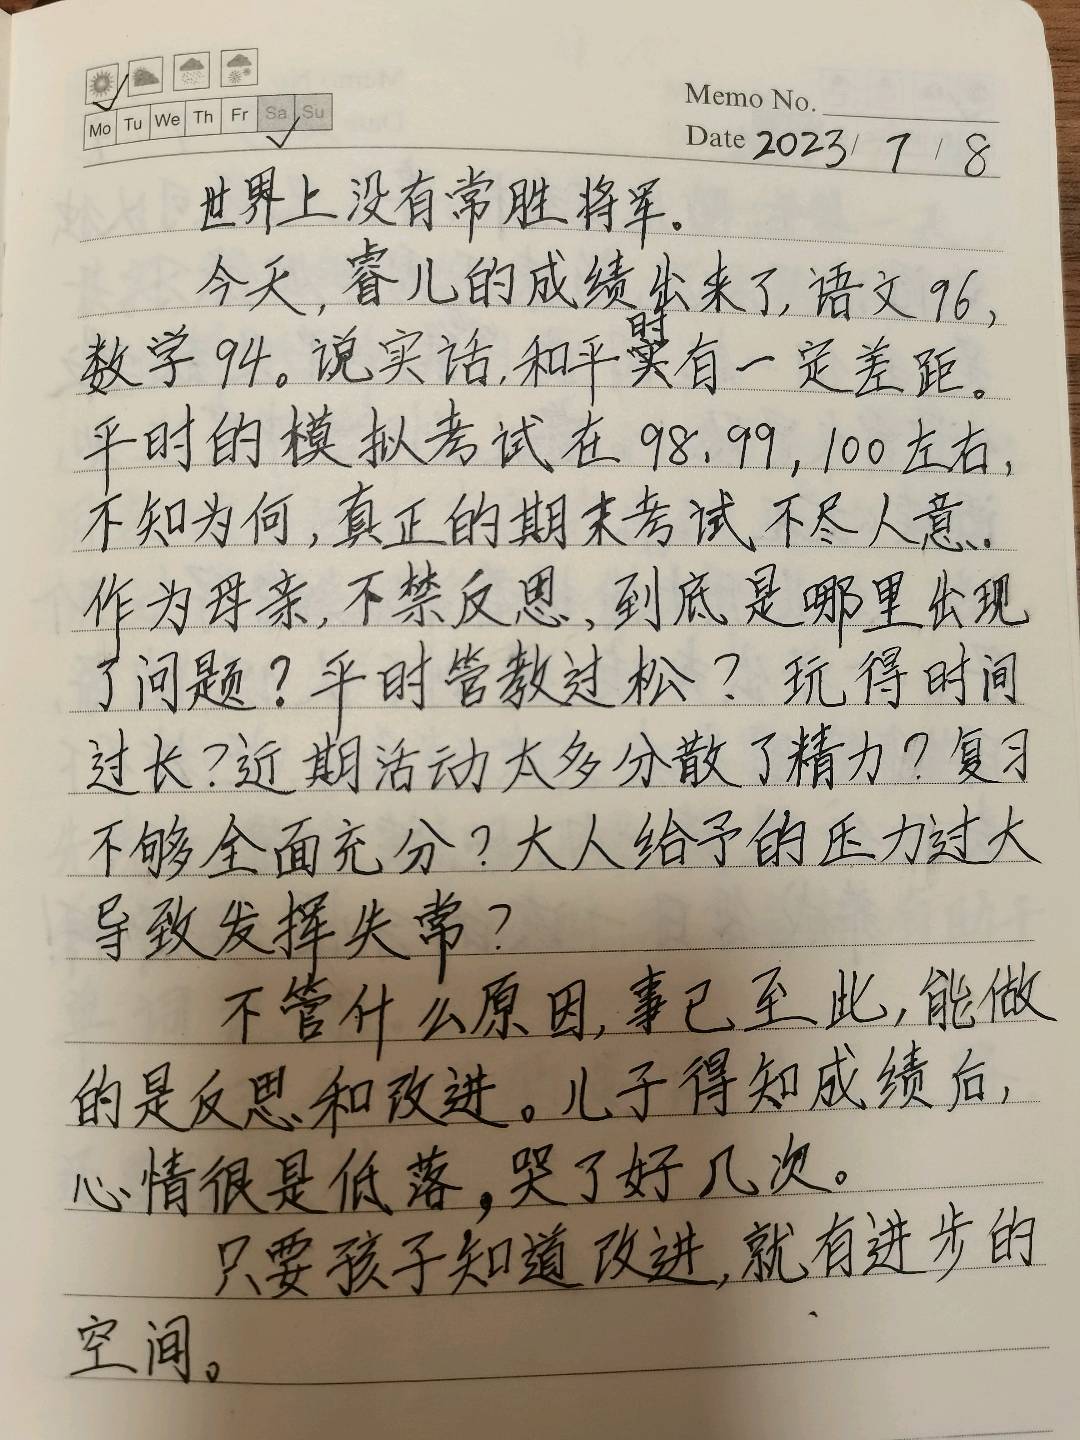 Mo Tu We Th Fr Sa Su
Memo No.
Date 2023/7/8
世界上没有常胜将军。
今天,睿儿的成绩出来了,语文96,
数学94。说实话,和平时有一定差距。
平时的模拟考试在98、99,100左右,
不知为何,真正的期末考试不尽人意.
作为母亲,不禁反思,到底是哪里出现
了问题?平时管教过松?玩得时间
过长?近期活动太多分散了精力?复习
不够全面充分?大人给予的压力过大
导致发挥失常?
不管什么原因,事已至此,能做
的是反思和改进。儿子得知成绩后,
心情很是低落,哭了好几次。
只要孩子知道改进,就有进步的
空间。